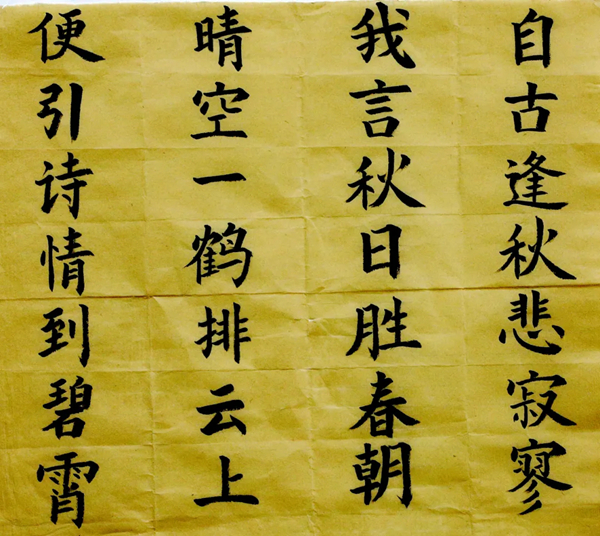 自古逢秋悲寂寥
我言秋日胜春朝
晴空一鹤排云上
便引诗情到碧霄